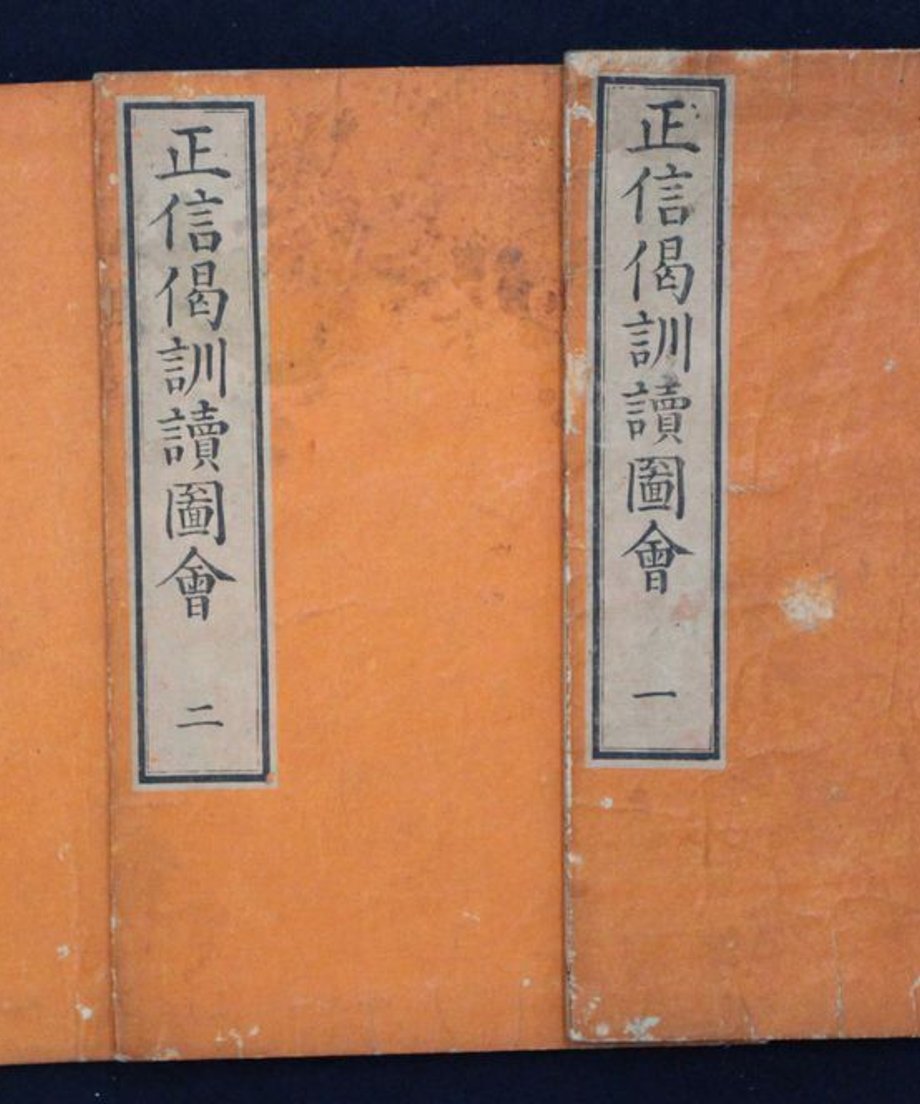 正信偈訓讀圖會 一
正信偈訓讀圖會 二